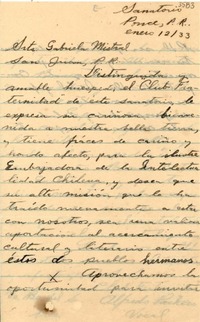 3583
Sanatorio
Ponce, P. R.
enero 12/33
Srta. Gabriela Mistral
San Juan, P. R.
Distinguida y
amable huesped, el Club Fra-
ternidad de este sanatorio le
expresa su cariñosa bienve-
nida a nuestra bella tierra,
y tiene frases de cariño y
hondo afecto, para la ilustre
Embajadora de la Intelectua-
lidad Chilena, y desea que
su alta misión que la ha
traído nuevamente a estar
con nosotros, sea una valiosa
aportación al acercamiento
cultural y literario entre
éstos dos pueblos hermanos
Aprovechamos la
oportunidad para enviarle